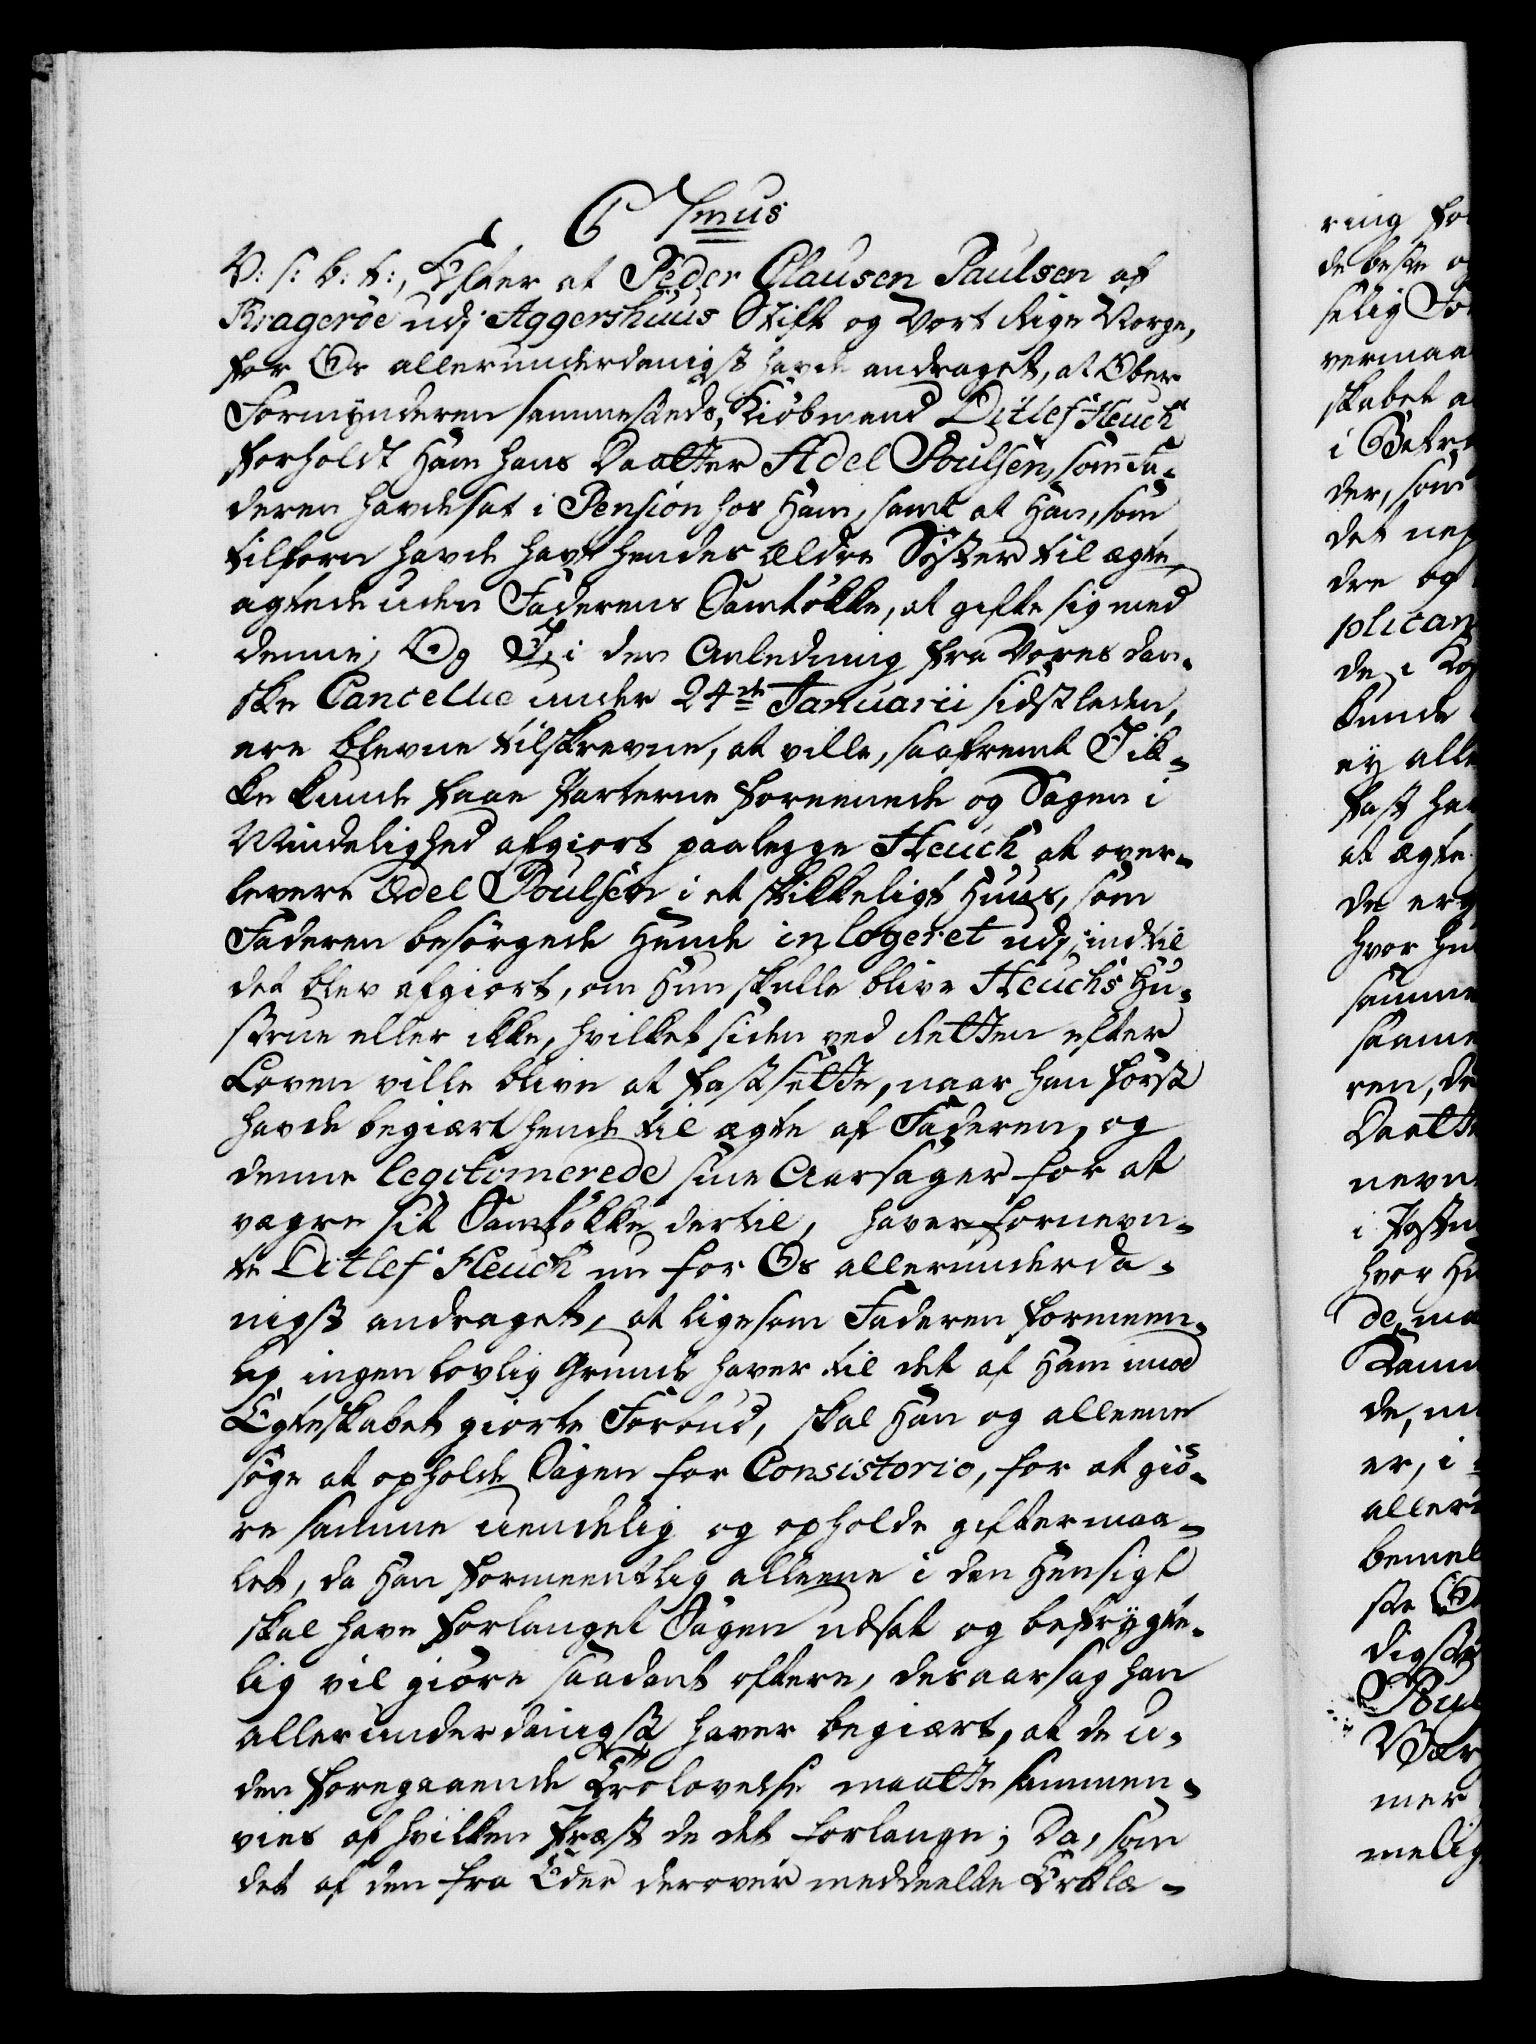 C 7mus
V: s: b: t:, Efter at Peder Clausen Paulsen af
Kragerøe udj Aggershuus Stift og Vort Rige Norge,
for Os allerunderdanigst havde andraget, at Ober
Formynderen sammesteds, Kiöbmand Ditlef Heuch
forholdt Ham hans Daatter Adel Poulsen, som Fa-
deren havde sat i Pension hos Ham, samt at Han, som
tilforn havde havt hendes Ældre Syster til ægte,
agtede uden Faderens Samtökke, at gifte sig med
denne; Og I, i den Anledning fra Vores dan-
ske Cancellie under 24de Januarii sidstleden,
ere blevne tilskrevne, at ville, saafremt I ik-
ke kunde faae Parterne foreenede og Sagen i
Mindelighed afgiort paalegge Heuch at over-
levere Ædel Poulsen i et skikkeligt Huus, som
Faderen besörgede Hende inlogeret udj, indtil
det blev afgiort, om Hun skulle blive Heuchs Hu-
strue eller ikke, hvilket siden ved Retten efter
Loven ville blive at fastsette, naar han först
havde begiært hende til ægte af Faderen, og
denne legitimerede sine Aarsager for at
vægre sit Samtökke dertil, haver fornevn-
te Ditlef Heuch nu for Os allerunderda-
nigst andraget, at ligesom Faderen formeen-
lig ingen lovlig Grund haver til det af Ham imod
Egteskabet giorte Forbud, skal Han og alleene
söge at opholde Sagen for Consistorio, for at giö-
re samme uendelig og opholde giftermaa-
let, da Han formeentlig alleene i den Hensigt
skal have forlanget Sagen udsat og befrygte-
lig vil giöre saadant oftere, desaarsag han
allerunderdanigst haver begiært, at de u-
den foregaaende Trolovelse maatte sammen-
vies af hvilken Præst de det forlange; Da, som
det af den fra Eder derover meddeelte Erklæ-